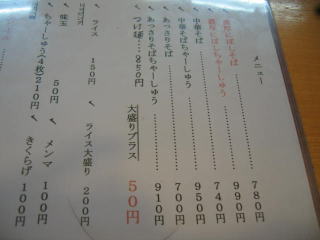 メニュー
濃厚にぼしそば…………780円
濃厚にぼしちゃーしゅう…………990円
中華そば…………740円
中華そばちゃーしゅう…………950円
あっさりそば…………700円
あっさりそばちゃーしゅう…………910円
つけ麺……850円
大盛りプラス 50円
ライス 150円
ライス大盛り 200円
味玉 50円
メンマ 100円
ちゃーしゅう(4枚)210円
きくらげ 100円